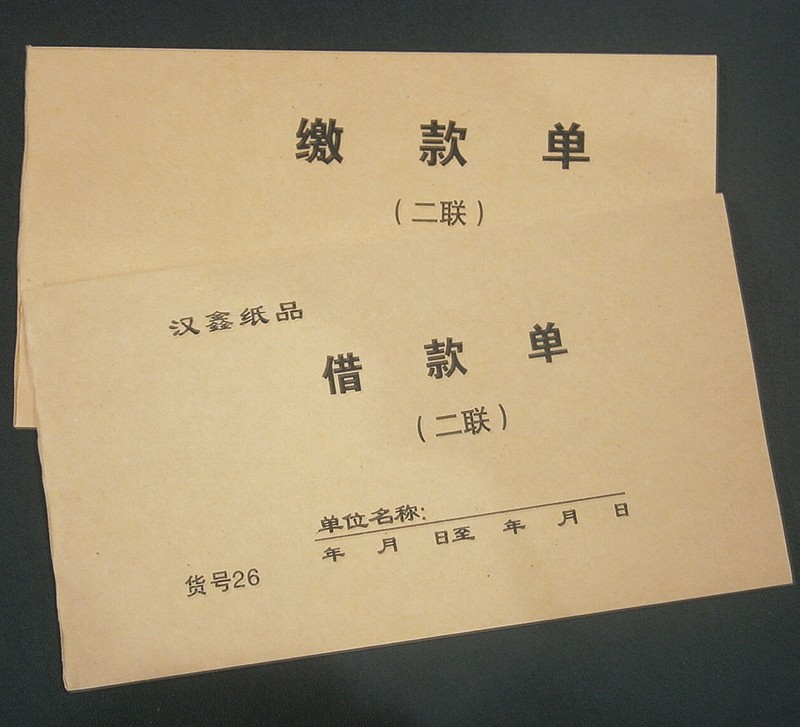 缴款单
（二联）
汉鑫纸品
借款单
（二联）
单位名称：
年 月 日至 年 月 日
货号26